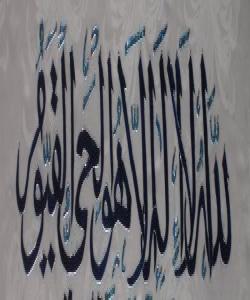 الله لا إله إلا هو الحي القيوم